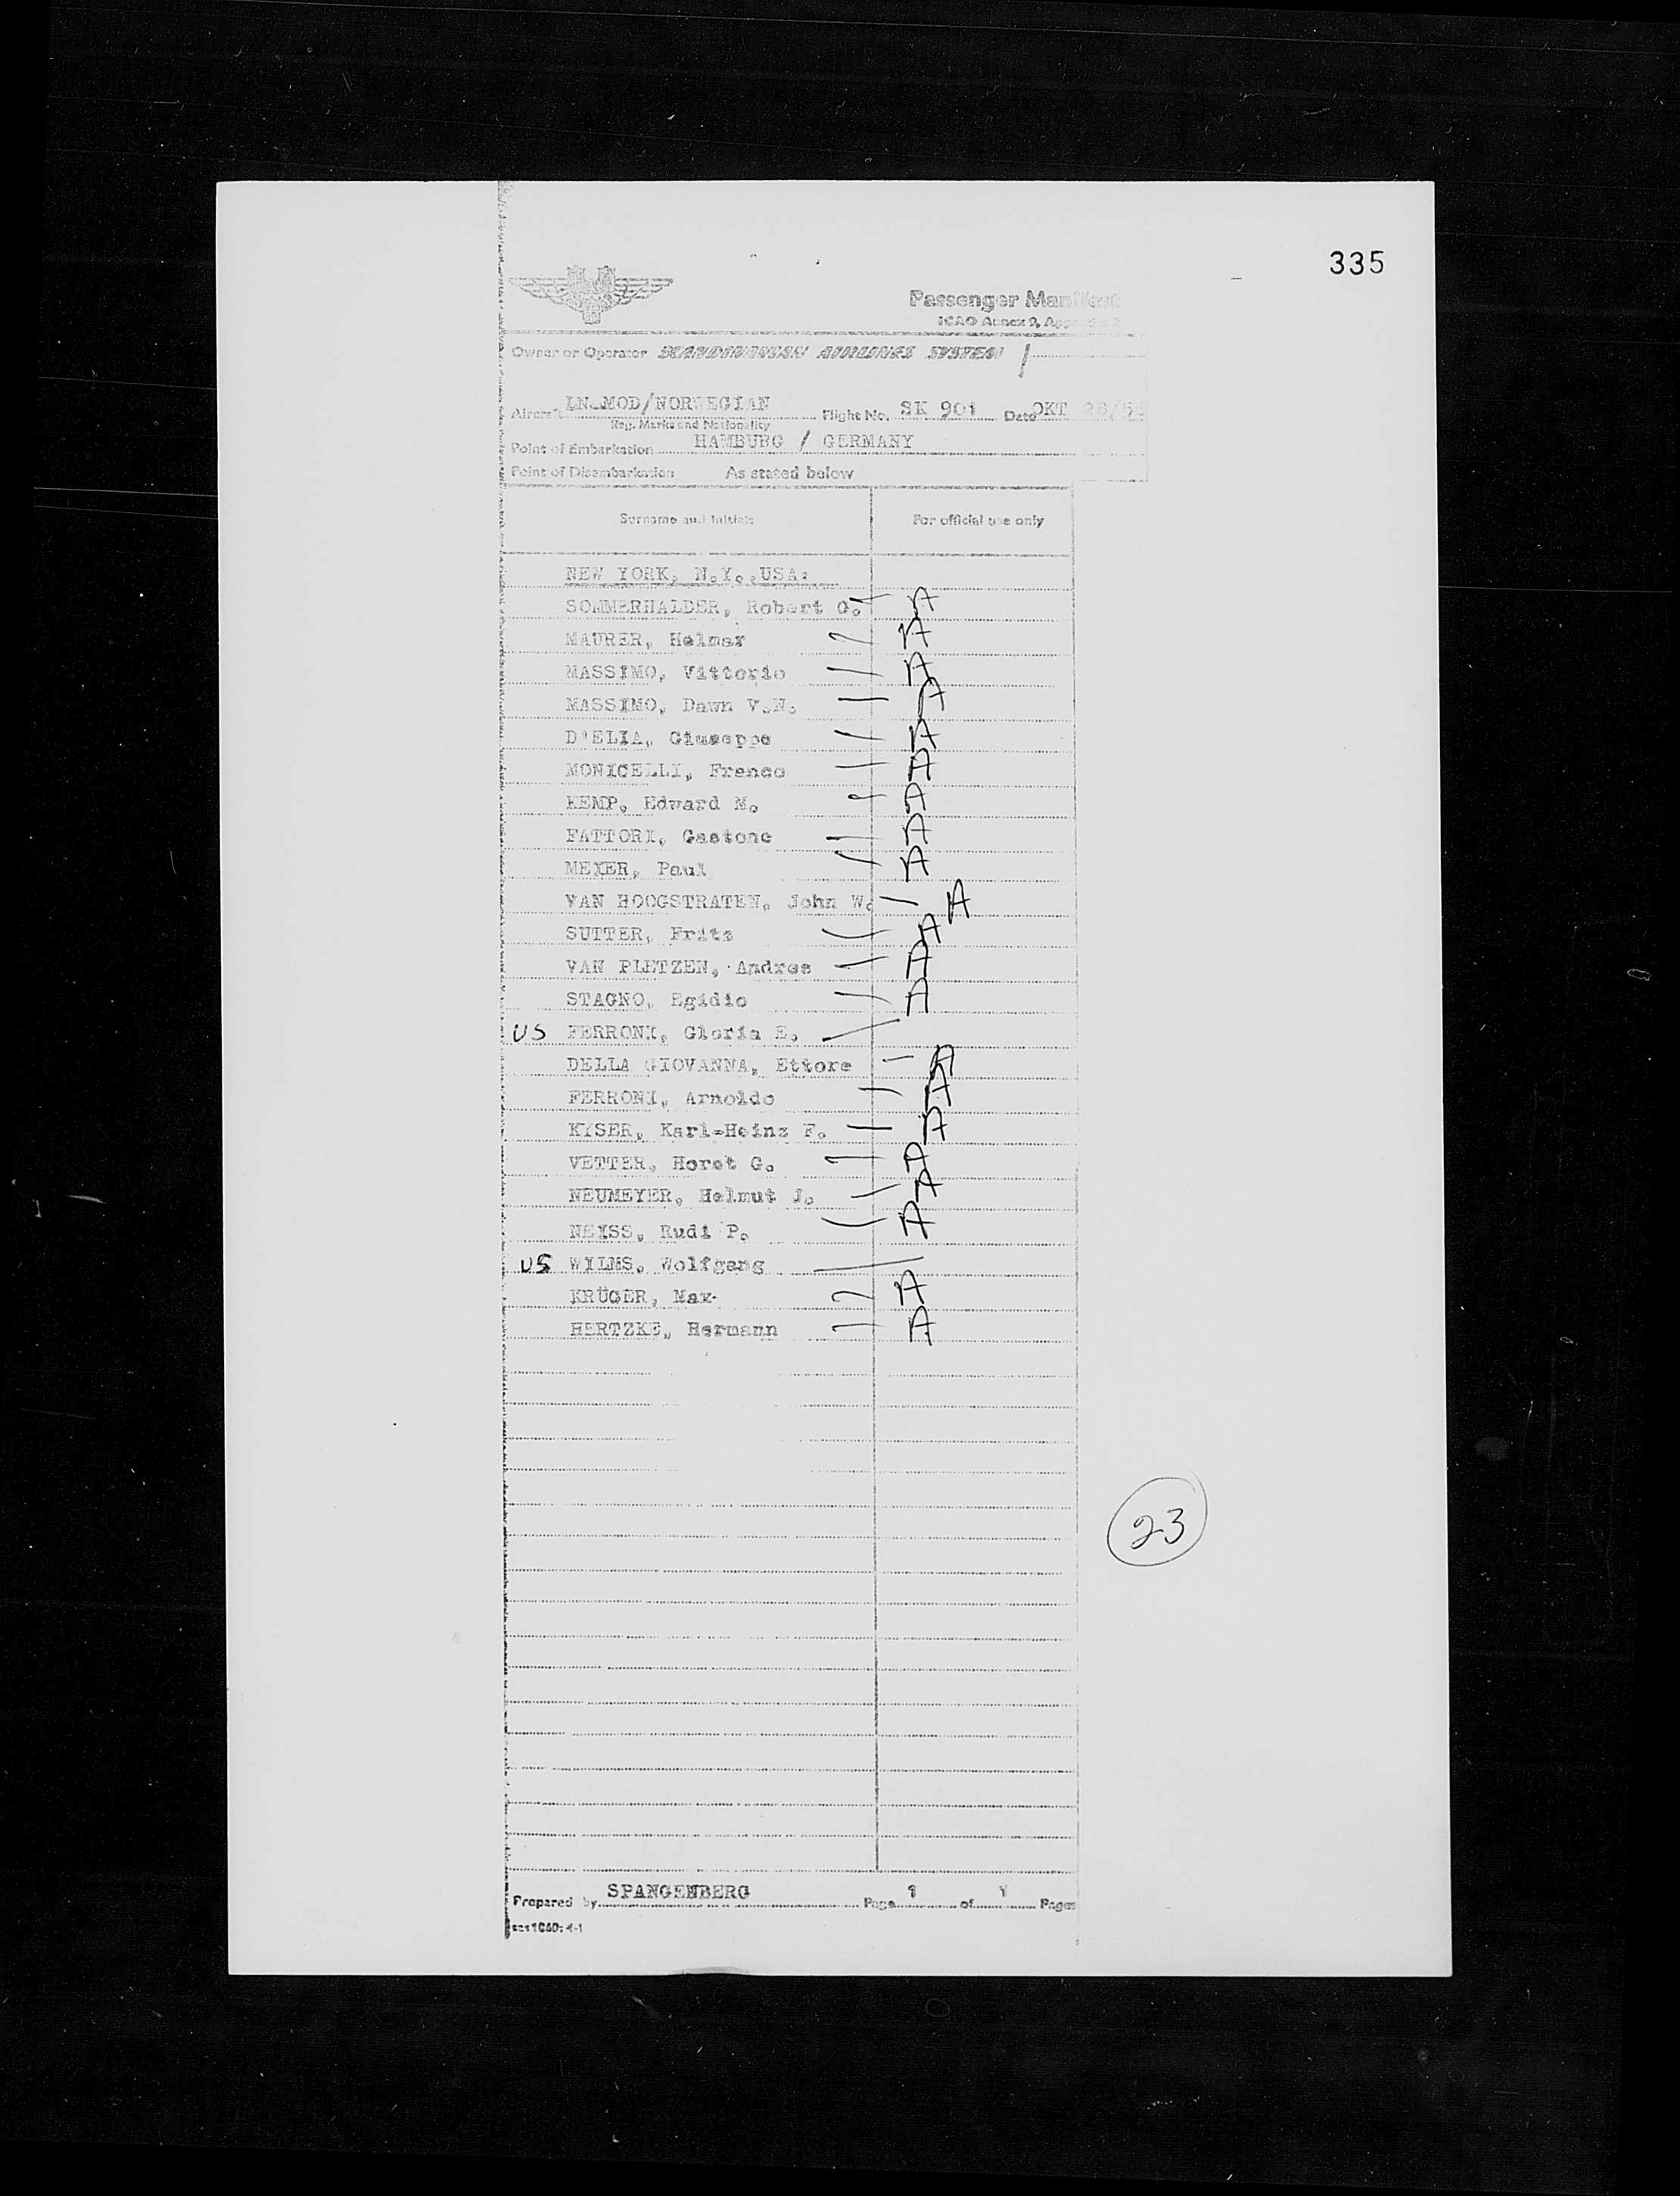 335
Passenger Manifest
ICAO Annex 9, Appendix 2
Owner or Operator SCANDINAVIAN AIRLINES SYSTEM /
Aircraft LN-MOD/NORWEGIAN Flight No. SK 901 Date OKT 28/5
Reg. Marks and Nationality
Point of Embarkation HAMBURG / GERMANY
Point of Disembarkation As stated below
Surname and Initials For official use only
NEW YORK, N.Y., USA:
SOMMERHALDER, Robert G. A
MAURER, Helmar A
MASSIMO, Vittorio A
MASSIMO, Dawn V.N. A
D'ELIA, Giuseppe A
MONICELLI, Franco A
KEMP, Edward N. A
FATTORI, Gastone A
MEYER, Paul A
VAN HOOGSTRATEN, John W. A
SUTTER, Fritz A
VAN PLETZEN, Andres A
STAGNO, Egidio A
US FERRONI, Gloria E.
DELLA GIOVANNA, Ettore A
FERRONI, Arnoldo A
KYSER, Karl-Heinz F. A
VETTER, Horst G. A
NEUMEYER, Helmut J. A
NEISS, Rudi P. A
US WILMS, Wolfgang
KRÜGER, Max A
HERTZKE, Hermann A
23
Prepared by SPANGENBERG Page 1 of 1 Pages